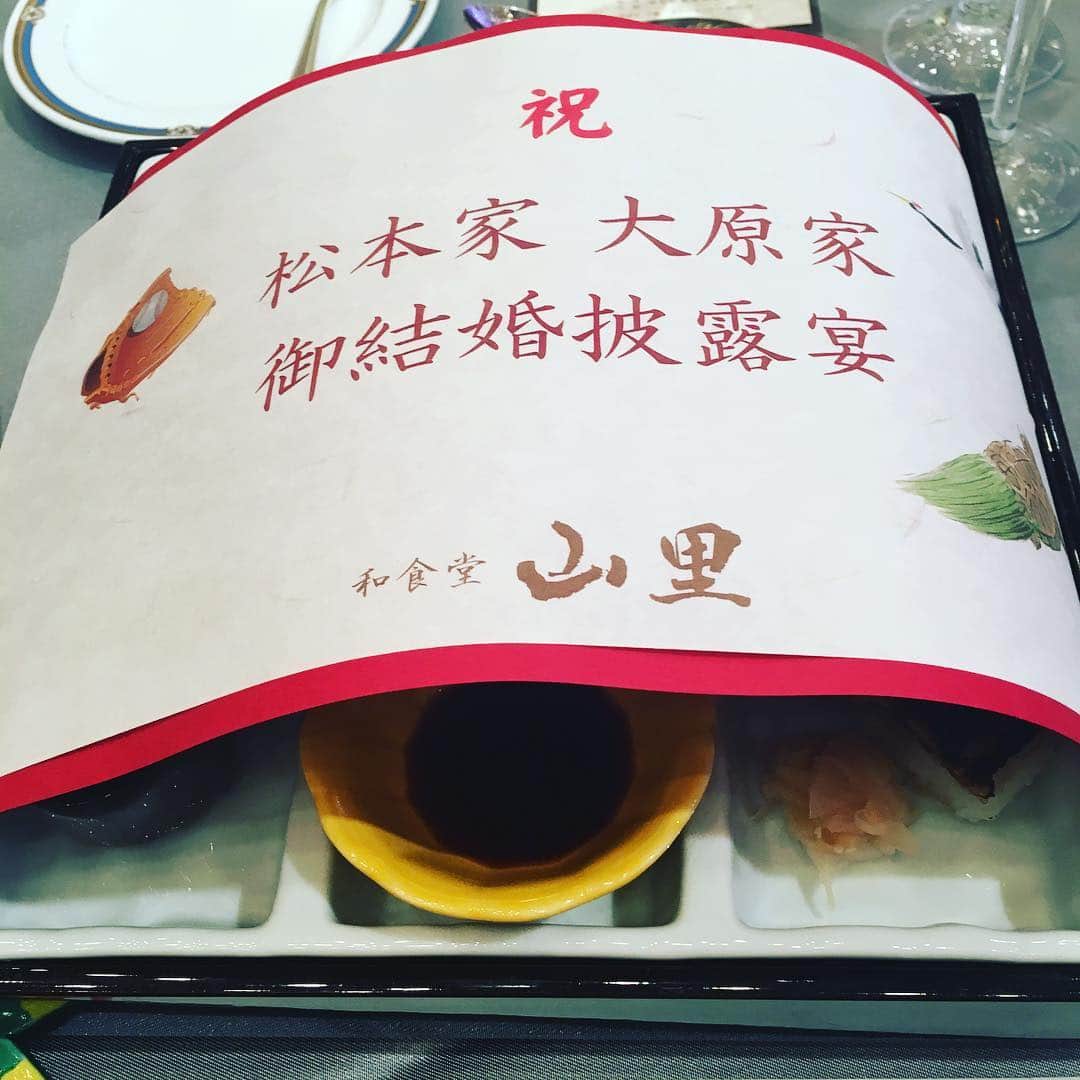 祝
松本家 大原家
御結婚披露宴
和食堂 山里